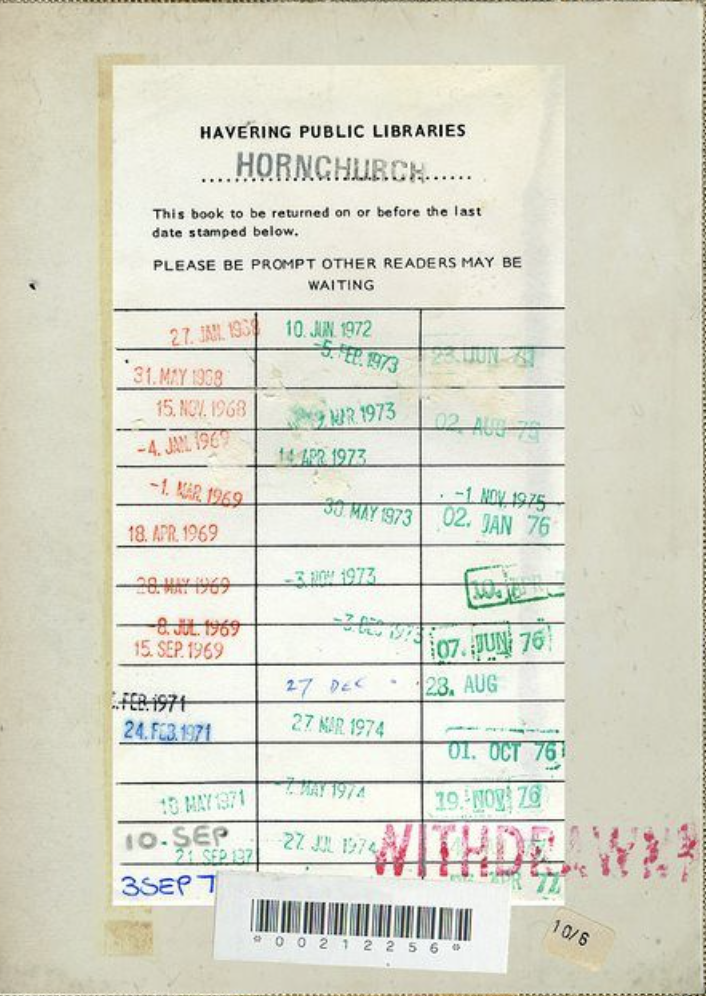 HAVERING PUBLIC LIBRARIES
HORNCHURCH
This book to be returned on or before the last
date stamped below.
PLEASE BE PROMPT OTHER READERS MAY BE
WAITING
27. JAN. 1968
31. MAY 1968
15. NOV. 1968
-4. JAN. 1969
-1. MAR. 1969
18. APR. 1969
28. MAY 1969
-8. JUL. 1969
15. SEP. 1969
FEB. 1971
24. FEB. 1971
MAY 1971
10. SEP
21 SEP 197
3 SEP 7
10. JUN. 1972
-5. FEB. 1973
MAR. 1973
14 APR. 1973
30. MAY 1973
-3. NOV 1973
-3. DEC 1973
27 DEC
27. MAR. 1974
-7. MAY 1974
27. JUL 1974
23. JUN
02. AUG 75
-1 NOV. 1975
02. JAN 76
10.
07. JUN 76
28. AUG
01. OCT 76
19. NOV 76
APR 77
WITHDRAWN
*00212256*
10/6